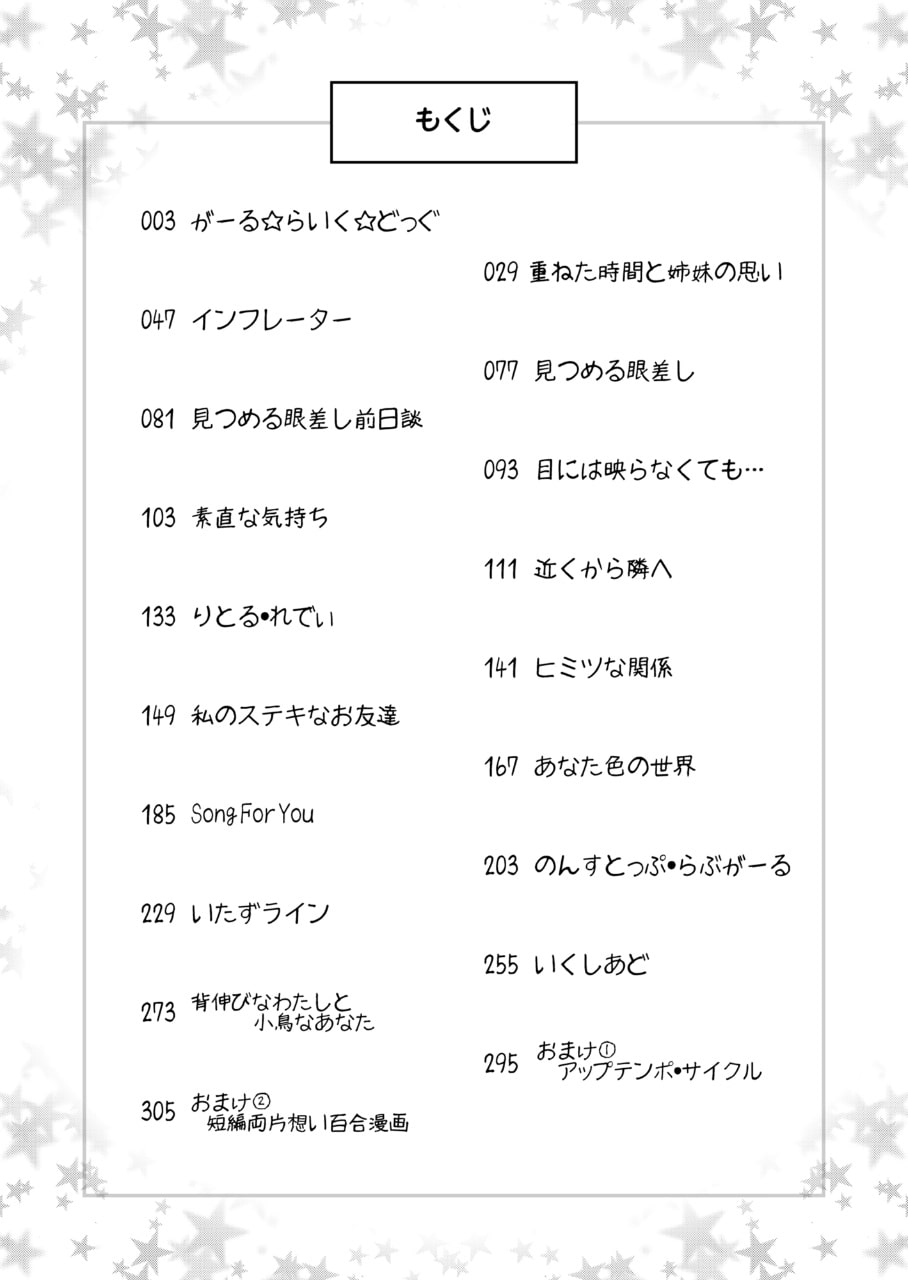 もくじ
003 がーる☆らいく☆どっぐ
029 重ねた時間と姉妹の思い
047 インフレーター
077 見つめる眼差し
081 見つめる眼差し前日談
093 目には映らなくても…
103 素直な気持ち
111 近くから隣へ
133 りとる•れでぃ
141 ヒミツな関係
149 私のステキなお友達
167 あなた色の世界
185 Song For You
203 のんすとっぷ•らぶがーる
229 いたずライン
255 いくしあど
273 背伸びなわたしと
小鳥なあなた
295 おまけ①
アップテンポ•サイクル
305 おまけ②
短編両片想い百合漫画